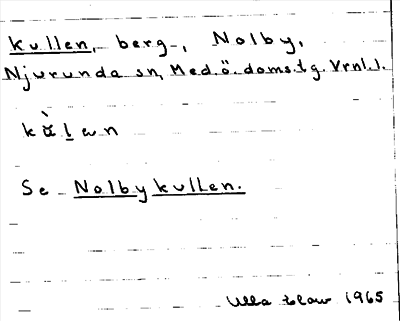 Kullen, berg, Nolby,
Njurunda sn, Med.ö.doms.tg. Vrnl.l.
Se Nolbykullen.
Ulla 1965